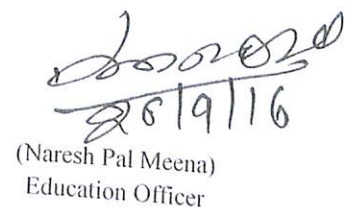 26/9/16
(Naresh Pal Meena)
Education Officer